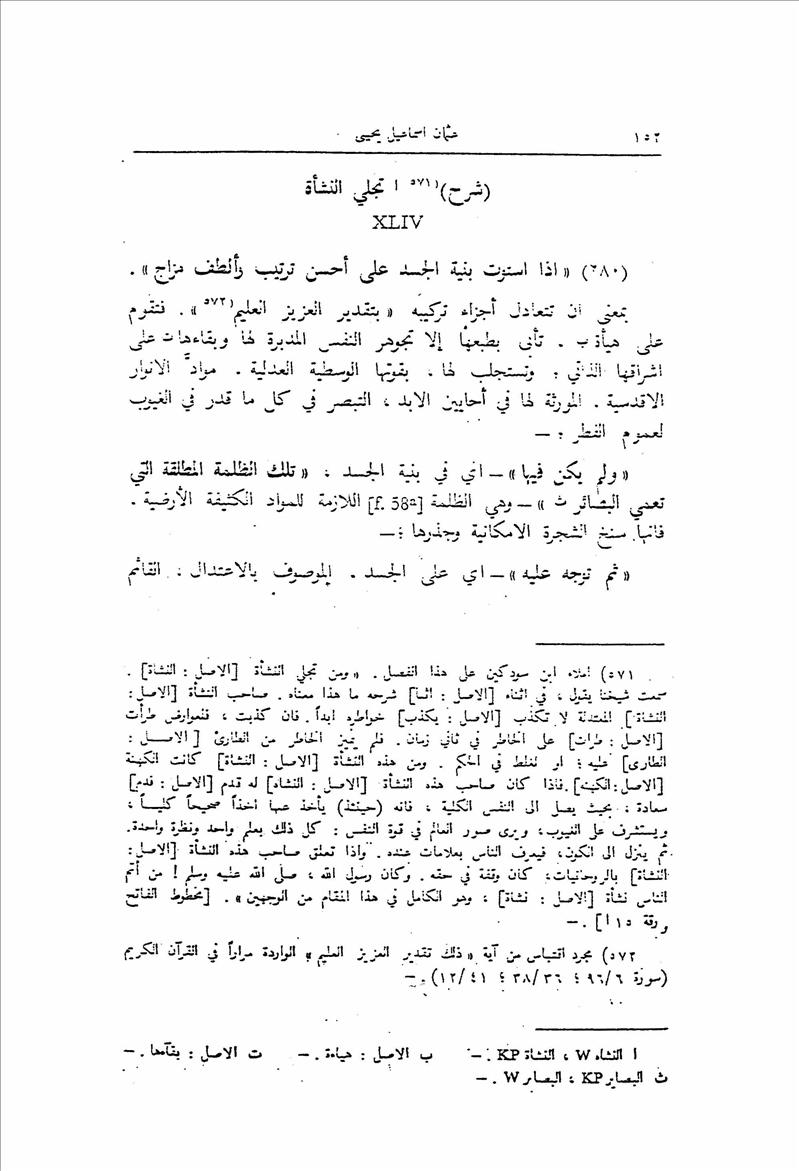 ١٥٢ عثمان اسماعيل يحيى
(شرح)(٥٧١ ا تجلي النشأة
XLIV
(٢٨٠) « اذا استوت بنية الجسد على أحسن ترتيب وألطف مزاج » .
بمعنى ان تتعادل أجزاء تركيبه « بتقدير العزيز العليم(٥٧٢ » . فتقوم
على هيأة ب . تأبى بطبعها إلا تجوهر النفس المدبرة لها وبقاءها ت على
اشراقها الذاتي ؛ وتستجلب لها ، بقوتها الوسطية العدلية . موادَّ الانوار
الاقدسية . المورثة لها في أحايين الابد ، التبصر في كل ما قدر في الغيوب
لعموم الفطر ؛ —
« ولم يكن فيها » — اي في بنية الجسد ، « تلك الظلمة المطلقة التي
تعمي البصائر ث » — وهي الظلمة [f. 58ª] اللازمة للمواد الكثيفة الأرضية .
فانها سنخ الشجرة الامكانية وجذرها ؛ —
« ثم توجه عليه » — اي على الجسد . الموصوف بالاعتدال ، القائم
٥٧١) املاء ابن سودكين على هذا الفصل . « ومن تجلي النشأة [الاصل : النشاة] .
سمعت شيخنا يقول ، في اثناء [الاصل : اثنا] شرحه ما هذا معناه . صاحب النشأة [الاصل :
النشاة] المعتدلة لا تكذب [الاصل : يكذب] خواطره ابداً . فان كذبت ، فلعوارض طرأت
[الاصل : طرات] على الخاطر في ثاني زمان . فلم يميز الخاطر من الطارئ [ الاصل :
الطاري] عليه ؛ او تغلط في الحكم . ومن هذه النشأة [الاصل : النشاة] كانت الكهنة
[الاصل : الكهنه] . فاذا كان صاحب هذه النشأة [الاصل : النشاه] له قدم [الاصل : قدم]
سعادة ، بحيث يصل الى النفس الكلية ، فانه (حينئذ) يأخذ عنها اخذاً صحيحاً كلياً ،
ويستشرف على الغيوب ، ويرى صور العالم في قوة النفس : كل ذلك بعلم واحد ونظرة واحدة .
ثم ينزل الى الكون ، فيعرف الناس بعلامات عنده . واذا تعلق صاحب هذه النشأة [الاصل :
النشاة] بالروحانيات ، كان وقفة في حقه . وكان رسول الله ، صلى الله عليه وسلم ! من أتم
الناس نشأة [الاصل : نشاة] ؛ وهو الكامل في هذا المقام من الوجهين » . [مخطوط الفاتح
ورقة ١٥ ا] . —
٥٧٢) مجرد اقتباس من آية « ذلك تقدير العزيز العليم » الواردة مراراً في القرآن الكريم
(سورة ٩٦/٦ ؛ ٣٨/٣٦ ؛ ١٢/٤١) . —
ا النشاه W ، النشاة KP . — ب الاصل : هياءة . — ت الاصل : بقآءها . —
ث البصاير KP ؛ البصار W . —